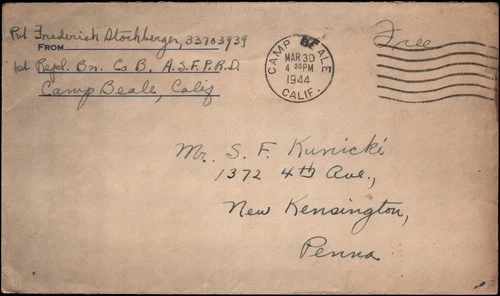 Pvt Frederick Stockberger, 33703939
FROM
1st Repl. Bn. Co B, A.S.F.P.R.D.
Camp Beale, Calif
CAMP BEALE
MAR 30
4 30 PM
1944
CALIF.
Free
Mr. S. F. Kunicki
1372 4th Ave.,
New Kensington,
Penna